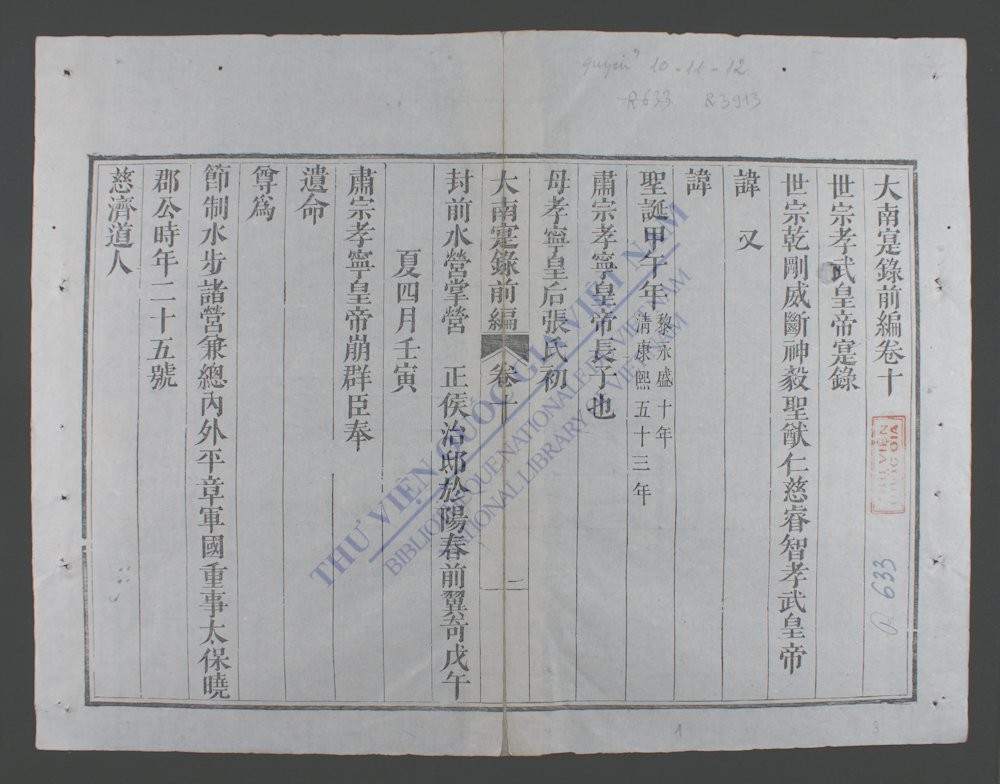 quyển 10-11-12
R633 R5913
大南寔錄前編卷十
世宗孝武皇帝寔錄
世宗乾剛威斷神毅聖猷仁慈睿智孝武皇帝
諱 又
諱
聖誕甲午年 黎永盛十年
清康熙五十三年
肅宗孝寧皇帝長子也
母孝寧皇后張氏初
大南寔錄前編 卷十 一
封前水營掌營 正侯治邸於陽春前翼奇戊午
夏四月壬寅
肅宗孝寧皇帝崩群臣奉
遺命
尊爲
節制水步諸營兼總內外平章軍國重事太保曉
郡公時年二十五號
慈濟道人
THƯ VIỆN QUỐC GIA VIỆT NAM
BIBLIOTHEQUE NATIONALE DU VIETNAM
NATIONAL LIBRARY OF VIETNAM
THƯ VIỆN
QUỐC GIA
R 633
1
3